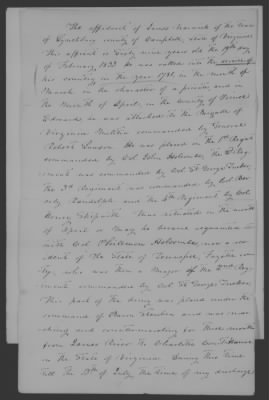 The affidavit of James of the town
of Lynchburg county of Campbell, state of Virginia
This affiant is Sixty nine years old the 19th day
of February 1833 he was called into the service of
his country in the year 1781, in the month of
March in the character of a private, and in
the Month of April, in the County of Prince
Edward he was attached to the Brigade of
Virginia Militia commanded by General
Robert Lawson. He was placed in the 1st Regt
commanded by Col John Holcombe, The 2d Regi
ment was commanded by Col St George Tucker,
The 3d Regiment was commanded by Col Bev
erly Randolph and the 4th Regiment by Col
Henry Skipwith That whilst in the month
of April or May he became acquainted
with Col Philemon Holcombe, now a resi
dent of the State of Tennessee, Fayette coun
ty, who was then a Major of the 2nd Regi
ment commanded by Col St George Tucker
This part of the Army was placed under the
command of Baron Steuben and was mar
ching and countermarching for three months
from James River to Charlotte Court House
in the State of Virginia During this time
till the 13th of July the time of my discharge